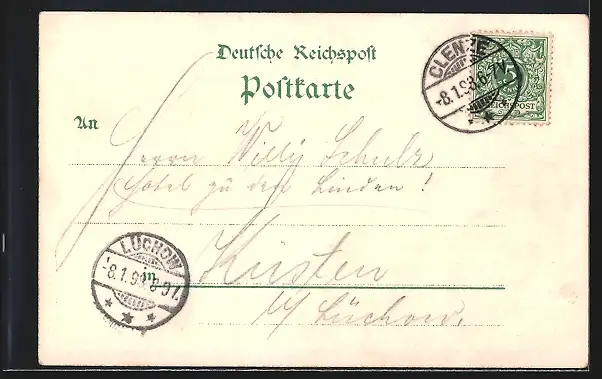 Deutsche Reichspost
Postkarte
An
Herrn Willy Schulz
Hotel zu den Linden!
in Küsten
b/ Lüchow.
CLENZE
-8.1.98. 6-7N.
5
REICHSPOST
LÜCHOW
-8.1.98.
* * *